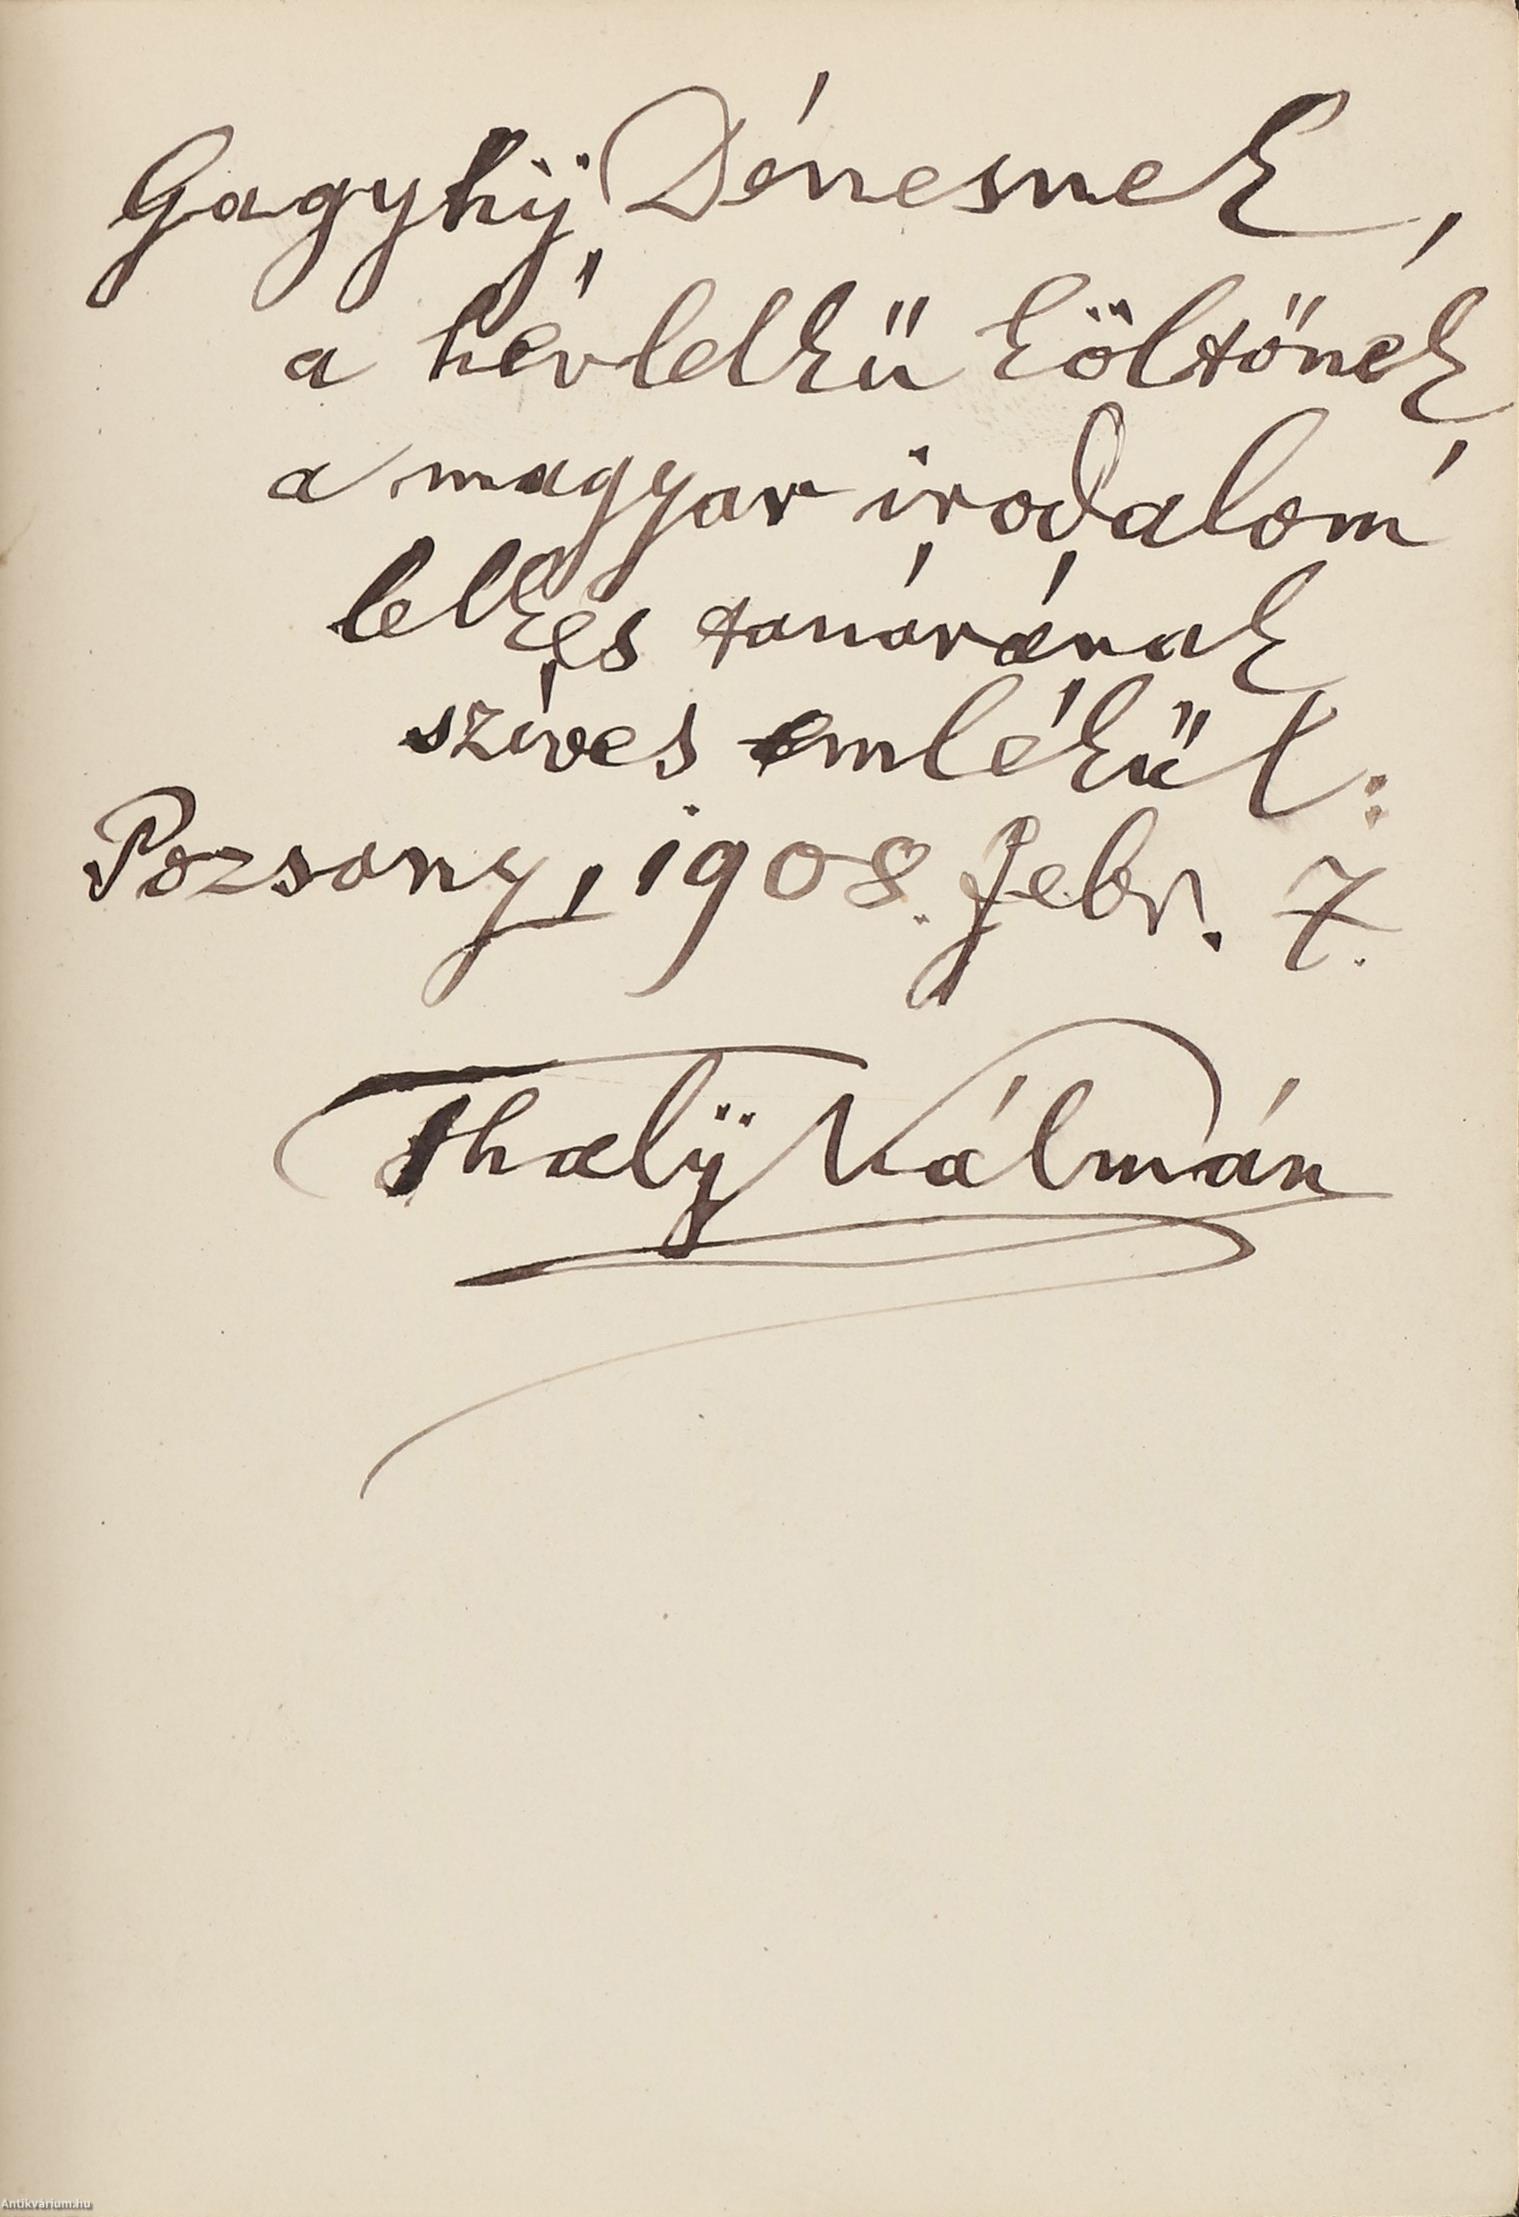 Gagyhÿ Dénesnek,
a hévlelkű költőnek,
a magyar irodalom
lelkes tanárának
szíves emlékűl:
Pozsony, 1908. febr. 7.
Thalÿ Kálmán
Antikvárium.hu